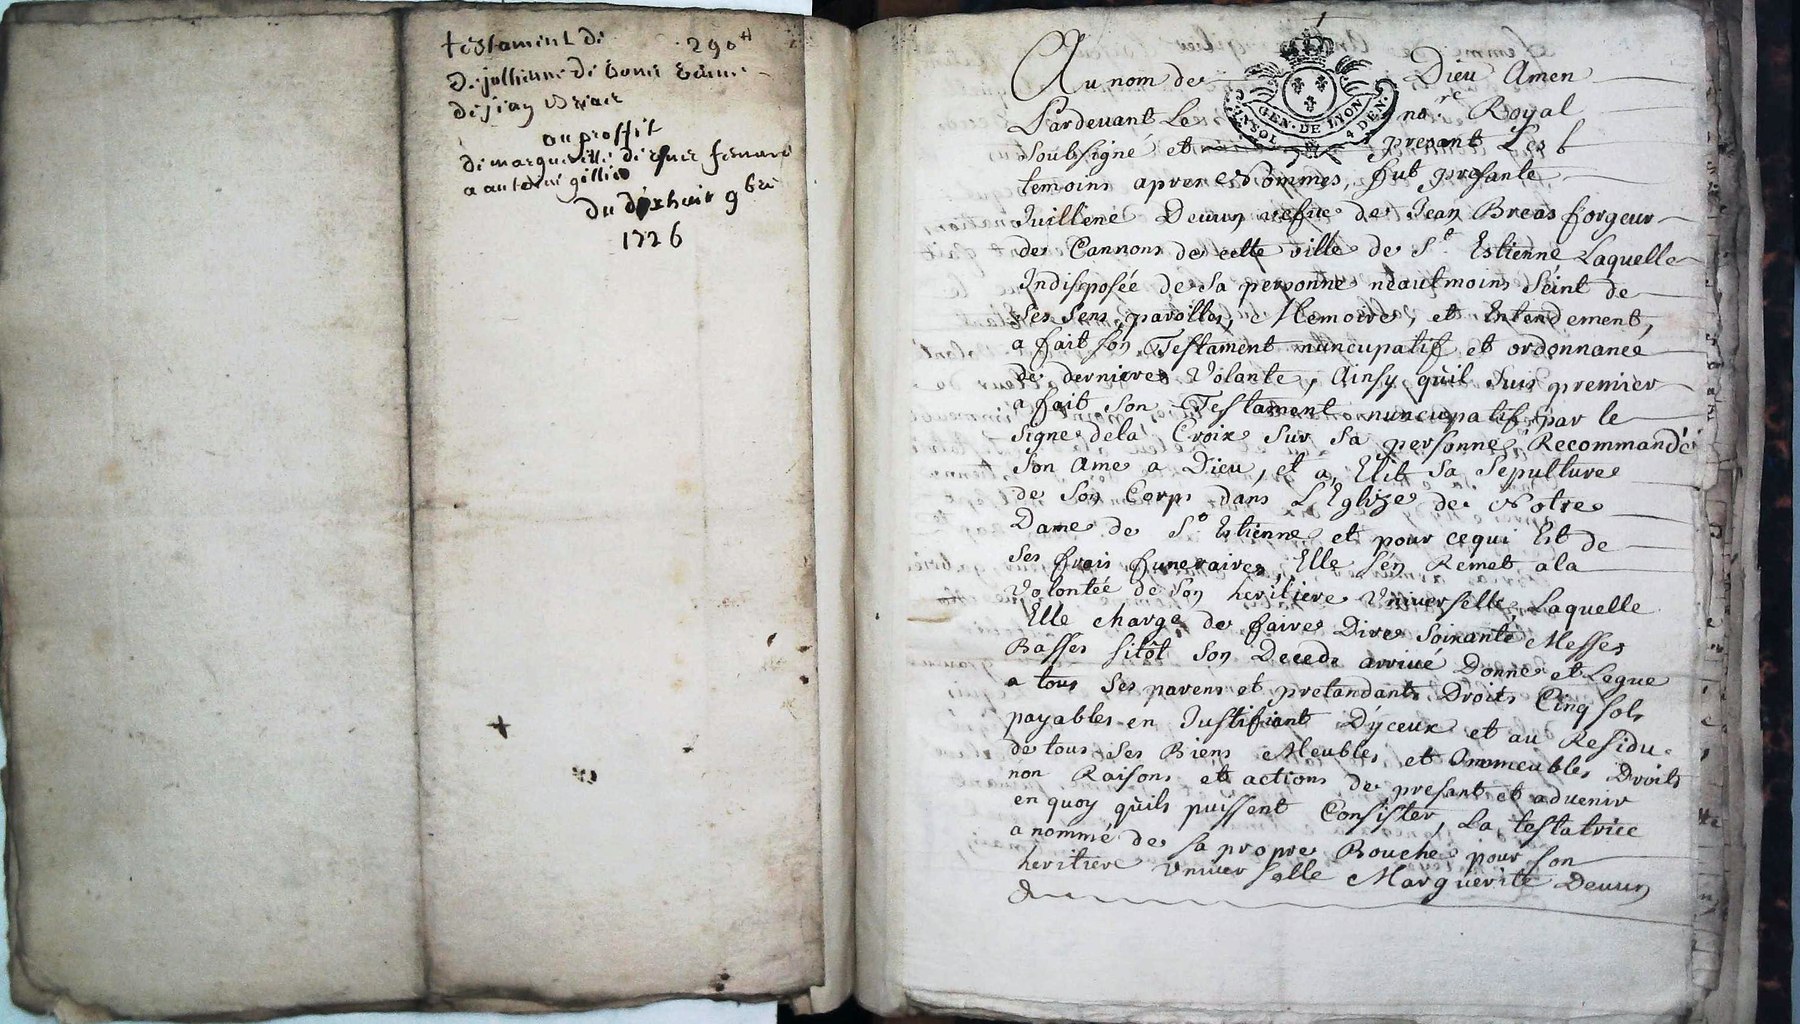 testament de
290#
de jullienne de
de jean
au proffit
de margueritte de
a antoine gillier
du dixhuit 9bre
1726
Au nom de Dieu Amen
GEN·DE LYON
4 DEN·
Pardevant Le nore Royal
soubsigné et presant Les
temoins apres Nommes, fut presante
Juillene Deuun vefue de Jean Breas forgeur
de Cannons de cette ville de St. Estienne Laquelle
Indisposée de sa personne neautmoins seint de
ses sens, parolles, Memoire, et Entendement,
a fait son Testament nuncupatif et ordonnance
de derniere Volante, Ainsy qu'il suis premier
a fait son Testament nuncupatif par le
signe dela Croix sur sa personne, Recommandé
son ame a Dieu, et a Elit sa Sepulture
de son Corps dans L'Eglize de Notre
Dame de St Estienne et pour cequi Est de
ses frais funeraires, Elle s'en Remet ala
volontée de son heritiere Universelle, Laquelle
Elle charge de faire Dire soixante Messes
Basses sitôt son Decede arriué Donne et Legue
a tous ses parens et pretandants Droits Cinq sols
payables en Justifiant D'yceux et au Residu
de tous ses Biens Meubles et Immeubles Droits
non Raisons et actions de presant et aduenir
en quoy quils puissent Consister, La testatrice
a nommé de sa propre Bouche pour son
heritiere Vniuerselle Marguerite Deuun